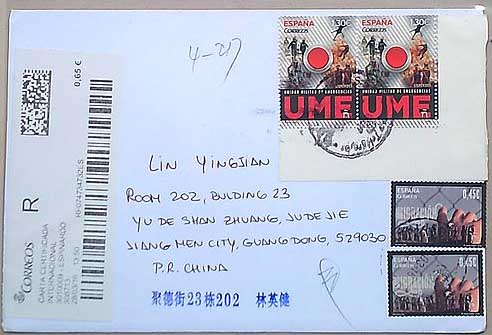 ESPAÑA
CORREOS
1,30€
ESPAÑA
CORREOS
1,30€
UNIDAD MILITAR DE EMERGENCIAS
UNIDAD MILITAR DE EMERGENCIAS
UME
UME
4-217
0,65 €
R
CORREOS
CARTA CERTIFICADA
INTERNACIONAL
LIN YINGJIAN
ROOM 202, BUILDING 23
YU DE SHAN ZHUANG, JUDE JIE
JIANG MEN CITY, GUANGDONG, 529030
P.R. CHINA
聚德街23栋202 林英健
ESPAÑA
CORREOS
0,45€
ESPAÑA
CORREOS
0,45€